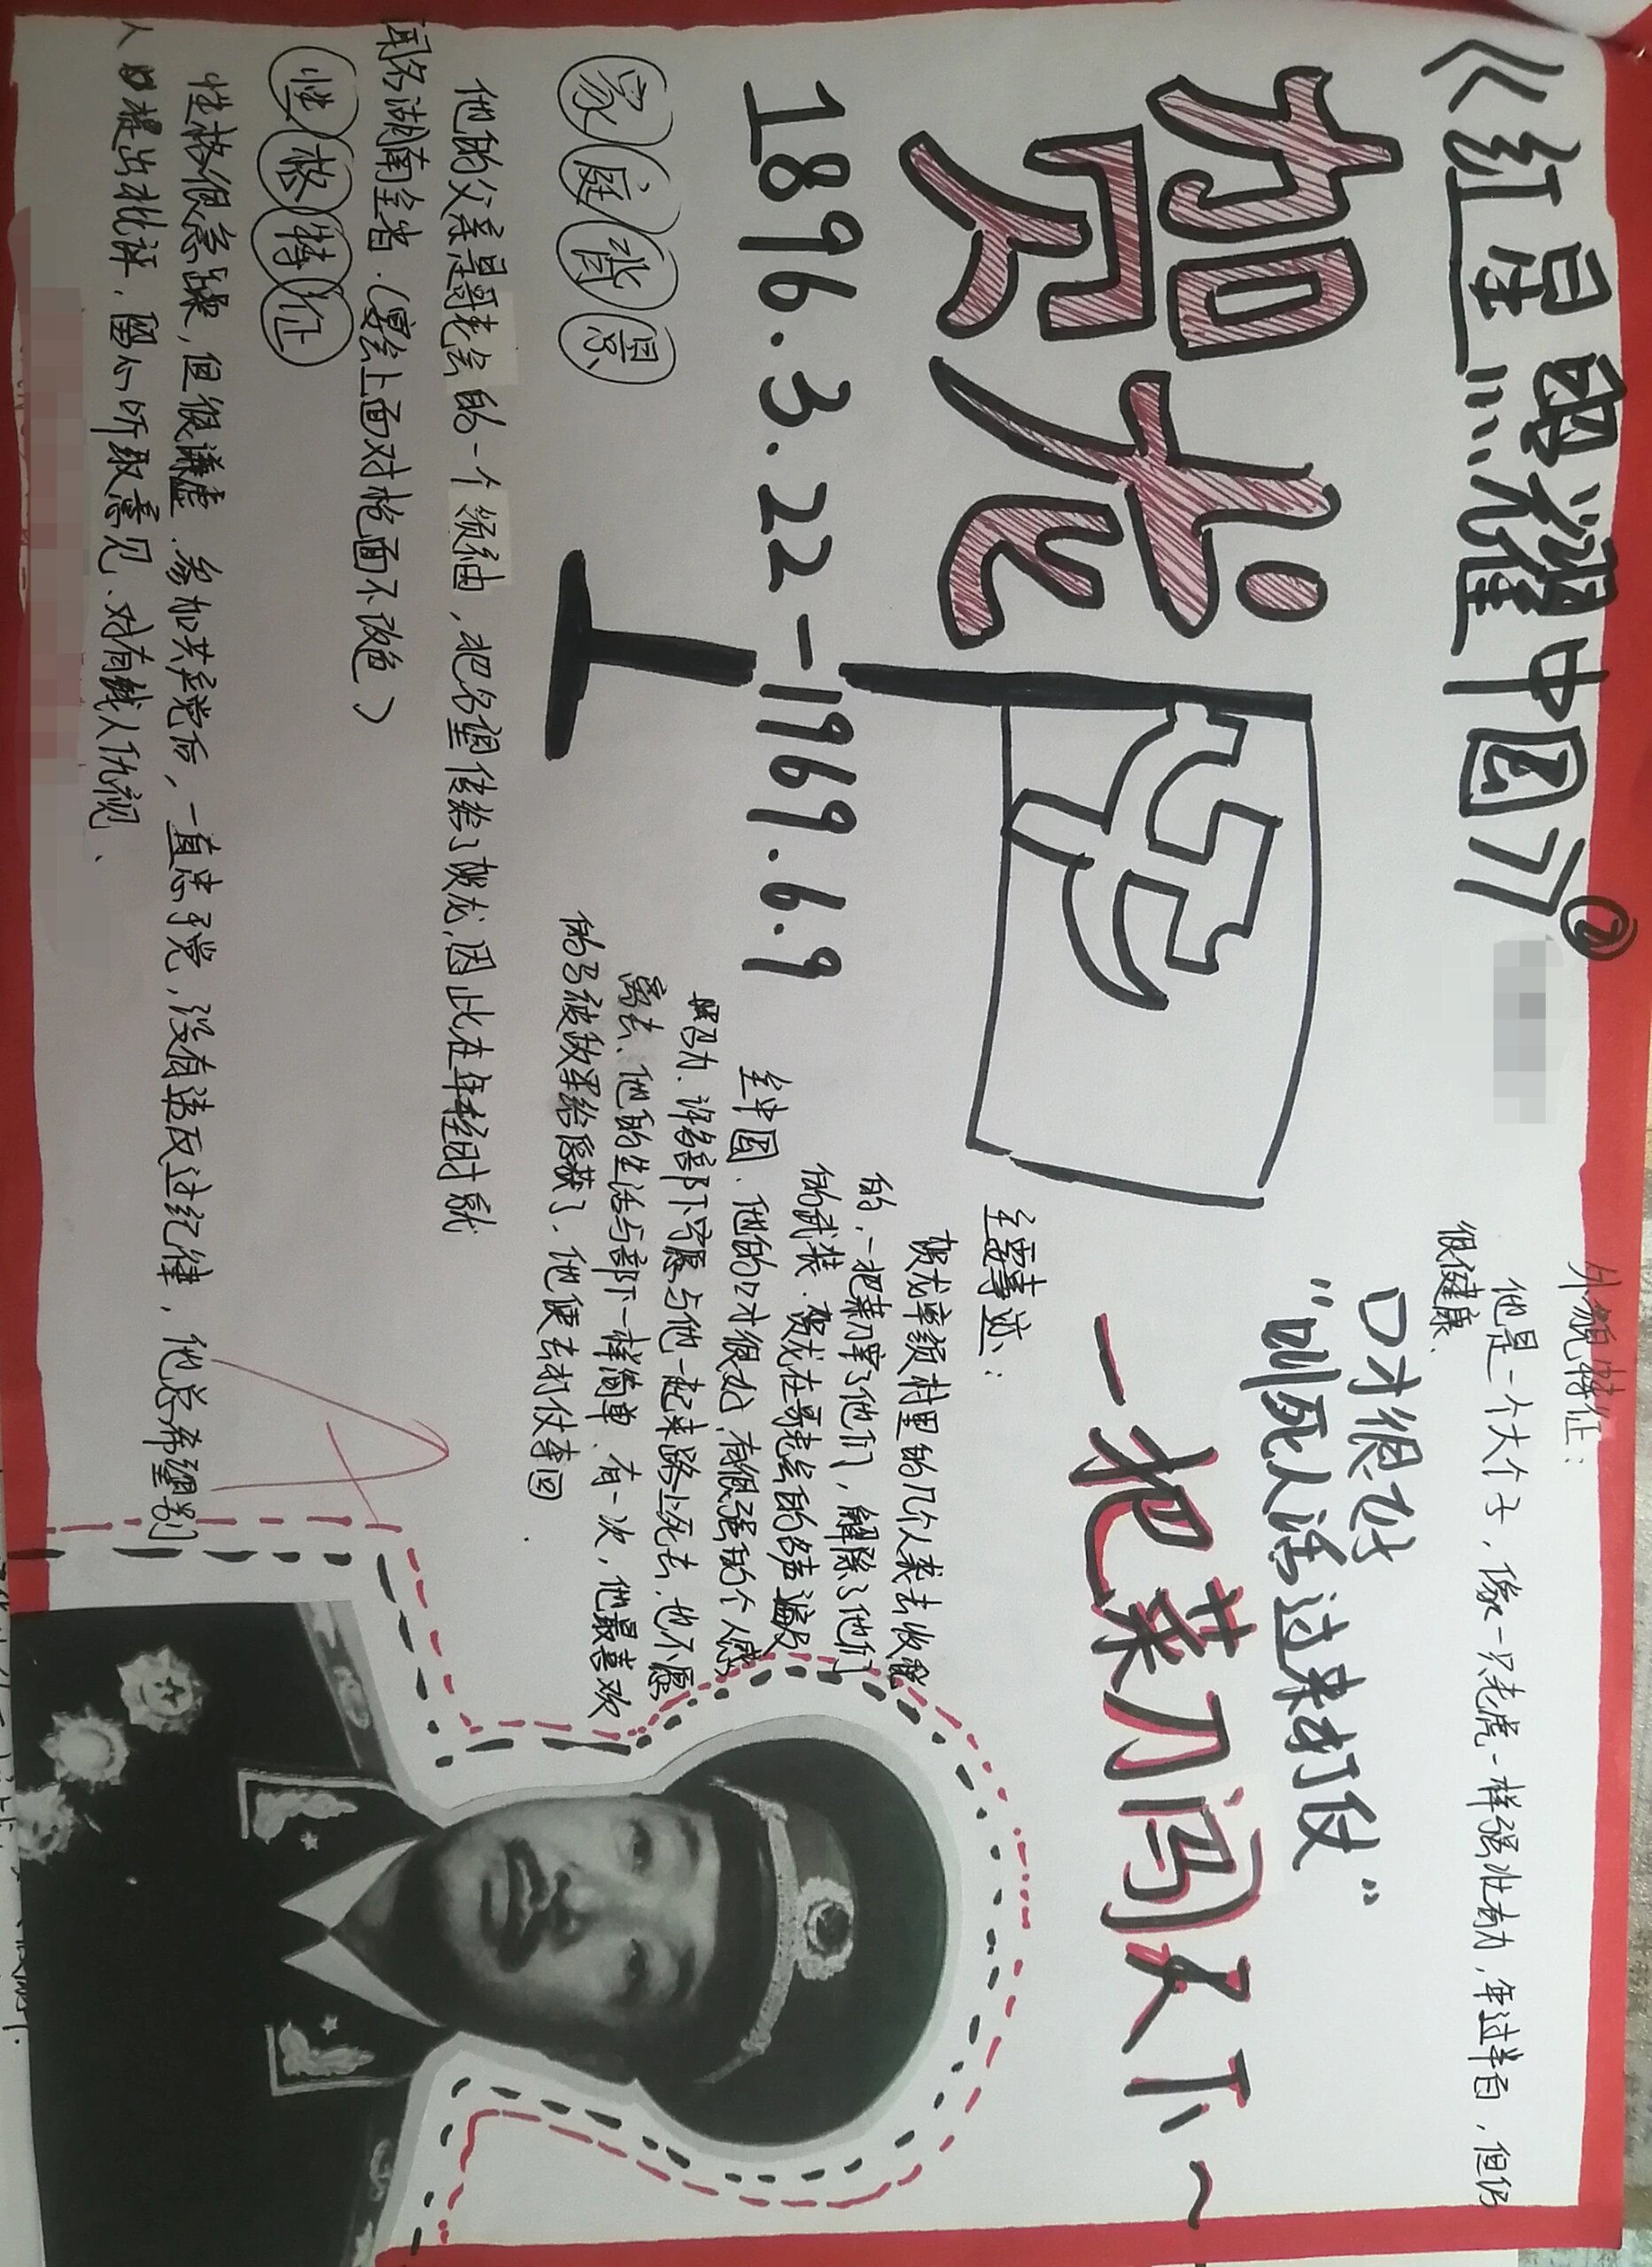 《红星照耀中国》②
贺龙
1896.3.22-1969.6.9
外貌特征：
他是一个大个子，像一只老虎一样强壮有力，年过半百，但仍
很健康、
口才很好
“叫死人活过来打仗”
一把菜刀闯天下~
主要事迹：
贺龙率领村里的几个人袭击收税
的，一把菜刀宰了他们，解除了他们
的武装．贺龙在哥老会的名声遍及
全中国、他的口才很好，有很强的个人感
召力．许多部下宁愿与他一起来路上死去，也不愿
离去、他的生活与部下一样简单、有一次，他最喜欢
的马被敌军给俘获了．他便去打仗夺回
家庭背景
他的父亲是哥老会的一个领袖，把名望传给了贺龙，因此在年轻时就
闻名湖南全省．（宴会上面对枪面不改色）
性格特征
性格很急躁，但很谦虚．参加共产党后，一直忠于党，没有违反过纪律，他总希望别
人提出批评．留心听取意见、对有钱人仇视、
A